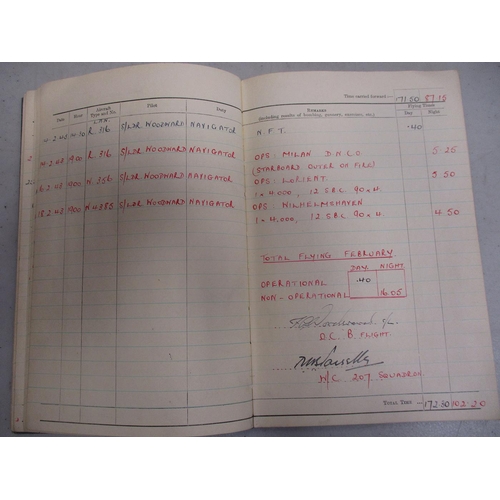 Time carried forward:— 171·50 87·15
Date Hour Aircraft Type and No. Pilot Duty REMARKS Flying Times
(including results of bombing, gunnery, exercises, etc.) Day Night
LAN.
2·43 R. 316 S/LDR WOODWARD NAVIGATOR N.F.T. ·40
2·43 1900 R. 316 S/LDR WOODWARD NAVIGATOR OPS: MILAN D.N.C.O 5·25
(STARBOARD OUTER ON FIRE)
16·2·43 1900 W. 356 S/LDR WOODWARD NAVIGATOR OPS: LORIENT. 5 50
1 x 4,000, 12 SBC 90 x 4.
18·2·43 1900 W 4385 S/LDR WOODWARD NAVIGATOR OPS WILHELMSHAVEN 4 50
1 x 4,000, 12 SBC 90 x 4.
TOTAL FLYING FEBRUARY.
DAY. NIGHT
OPERATIONAL ·40
NON-OPERATIONAL 16 05
O.C. B FLIGHT.
W/C 207. SQUADRON.
TOTAL TIME 172·30 102·20